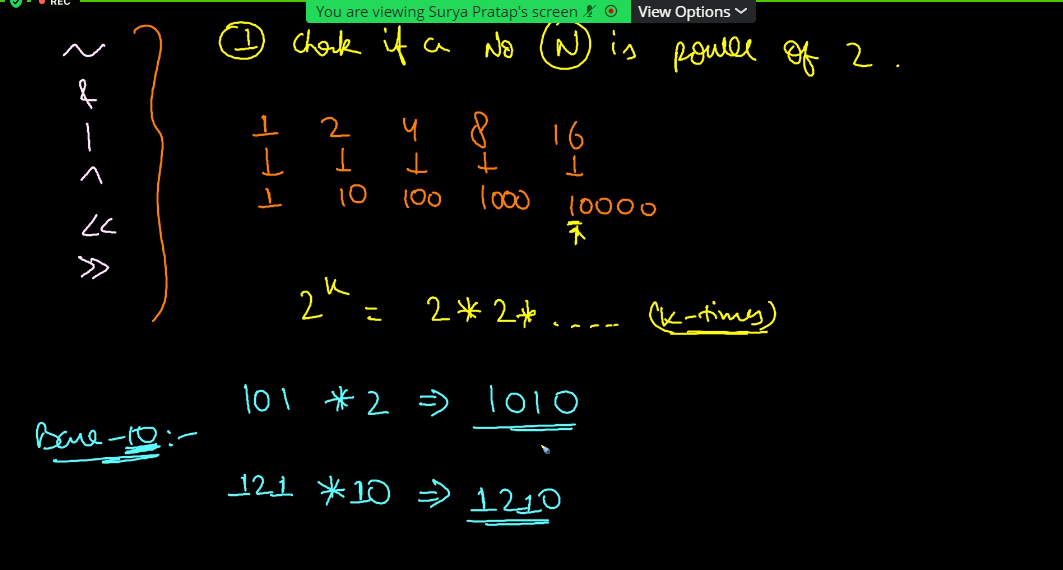 REC
You are viewing Surya Pratap's screen
View Options
① Check if a No (N) is power of 2 .
~
&
|
^
<<
>>
1 2 4 8 16
1 10 100 1000 10000
2^k = 2 * 2 * . ---- (k-times)
101 * 2 ⇒ 1010
Base-10:-
121 * 10 ⇒ 1210